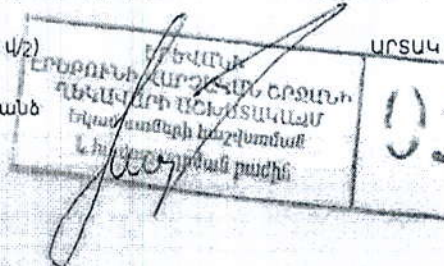 վ/շ)
անձ
ԵՐԵՎԱՆԻ
ԷՐԵԲՈՒՆԻ ՎԱՐՉԱԿԱՆ ՇՐՋԱՆԻ
ՂԵԿԱՎԱՐԻ ԱՇԽԱՏԱԿԱԶՄ
եկամուտների հաշվառման
և հավաքագրման բաժին
ԱՐՏԱԿ